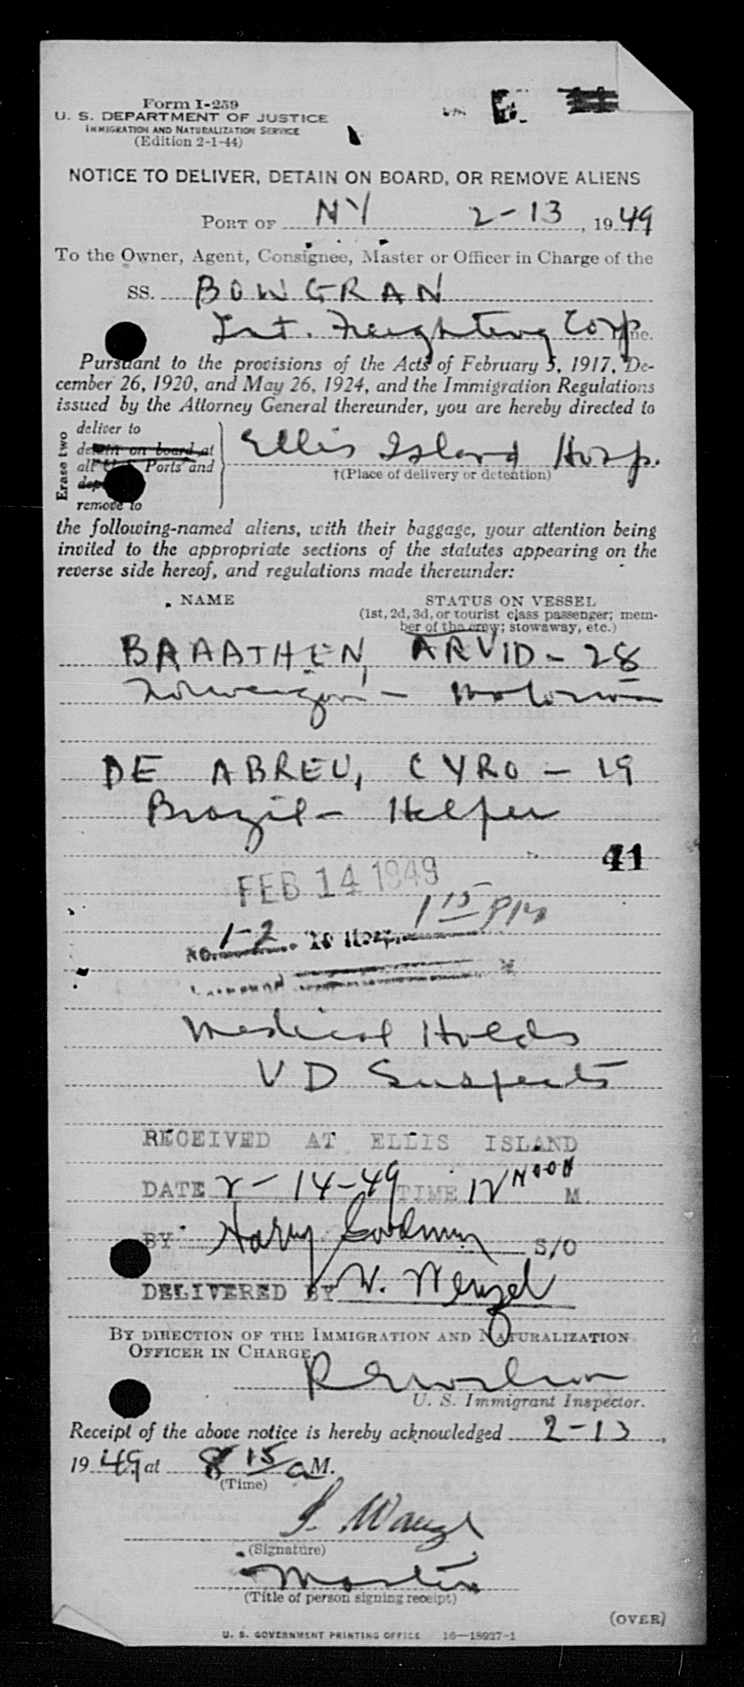 Form I-259
U. S. DEPARTMENT OF JUSTICE
IMMIGRATION AND NATURALIZATION SERVICE
(Edition 2-1-44)
NOTICE TO DELIVER, DETAIN ON BOARD, OR REMOVE ALIENS
PORT OF NY 2-13, 1949
To the Owner, Agent, Consignee, Master or Officer in Charge of the
SS. BOWGRAN
Int. Freighting Corp. Inc.
Pursuant to the provisions of the Acts of February 5, 1917, De-
cember 26, 1920, and May 26, 1924, and the Immigration Regulations
issued by the Attorney General thereunder, you are hereby directed to
Erase two
deliver to
detain on board at
all U.S. Ports and
remove to
Ellis Island Hosp.
†(Place of delivery or detention)
the following-named aliens, with their baggage, your attention being
invited to the appropriate sections of the statutes appearing on the
reverse side hereof, and regulations made thereunder:
NAME STATUS ON VESSEL
(1st, 2d, 3d, or tourist class passenger; mem-
ber of the crew; stowaway, etc.)
BRAATHEN, ARVID - 28
Norwegian - Motorman
DE ABREU, CYRO - 19
Brazil - Helper
41
FEB 14 1949
1 15 PM
No. 1-2 To Hosp.
Medical Holds
VD Suspects
RECEIVED AT ELLIS ISLAND
DATE 2-14-49 TIME 12 NOON M.
BY Harry Goodman S/O
DELIVERED BY W. Wenzel
BY DIRECTION OF THE IMMIGRATION AND NATURALIZATION
OFFICER IN CHARGE,
U. S. Immigrant Inspector.
Receipt of the above notice is hereby acknowledged 2-13,
1949 at 8 15/a M.
(Time)
(Signature)
Master
(Title of person signing receipt)
(OVER)
U. S. GOVERNMENT PRINTING OFFICE 16—18927-1